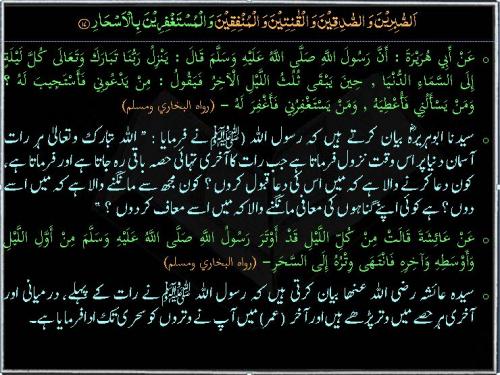 اَلصّٰبِرِيْنَ وَالصّٰدِقِيْنَ وَالْقٰنِتِيْنَ وَالْمُنْفِقِيْنَ وَالْمُسْتَغْفِرِيْنَ بِالْاَسْحَارِ (١٧)
عَنْ أَبِي هُرَيْرَةَ : أَنَّ رَسُولَ اللهِ صَلَّى اللهُ عَلَيْهِ وَسَلَّمَ قَالَ : يَنْزِلُ رَبُّنَا تَبَارَكَ وَتَعَالَى كُلَّ لَيْلَةٍ
إِلَى السَّمَاءِ الدُّنْيَا , حِينَ يَبْقَى ثُلُثُ اللَّيْلِ الْآخِرُ فَيَقُولُ : مَنْ يَدْعُونِي فَأَسْتَجِيبَ لَهُ ؟
وَمَنْ يَسْأَلُنِي فَأُعْطِيَهُ , وَمَنْ يَسْتَغْفِرُنِي فَأَغْفِرَ لَهُ - (رواه البخاري ومسلم)
سیدنا ابوہریرہؓ بیان کرتے ہیں کہ رسول اللہ (ﷺ) نے فرمایا : " اللہ تبارک وتعالیٰ ہر رات
آسمان دنیا پر اس وقت نزول فرماتا ہے جب رات کا آخری تہائی حصہ باقی رہ جاتا ہے اور فرماتا ہے،
کون دعا کرنے والا ہے کہ میں اس کی دعا قبول کروں؟ کون مجھ سے مانگنے والا ہے کہ میں اسے
دوں؟ ہے کوئی اپنے گناہوں کی معافی مانگنے والا کہ میں اسے معاف کردوں ؟ "
عَنْ عَائِشَةَ قَالَتْ مِنْ كُلِّ اللَّيْلِ قَدْ أَوْتَرَ رَسُولُ اللَّهِ صَلَّى اللَّهُ عَلَيْهِ وَسَلَّمَ مِنْ أَوَّلِ اللَّيْلِ
وَأَوْسَطِهِ وَآخِرِهِ فَانْتَهَى وِتْرُهُ إِلَى السَّحَرِ- (رواه البخاري ومسلم)
سیدہ عائشہ رضی اللہ عنھا بیان کرتی ہیں کہ رسول اللہ ﷺ نے رات کے پہلے، درمیانی اور
آخری ہر حصے میں وتر پڑھے ہیں اور آخر (عمر) میں آپ نے وتروں کو سحری تک ادا فرمایا ہے۔